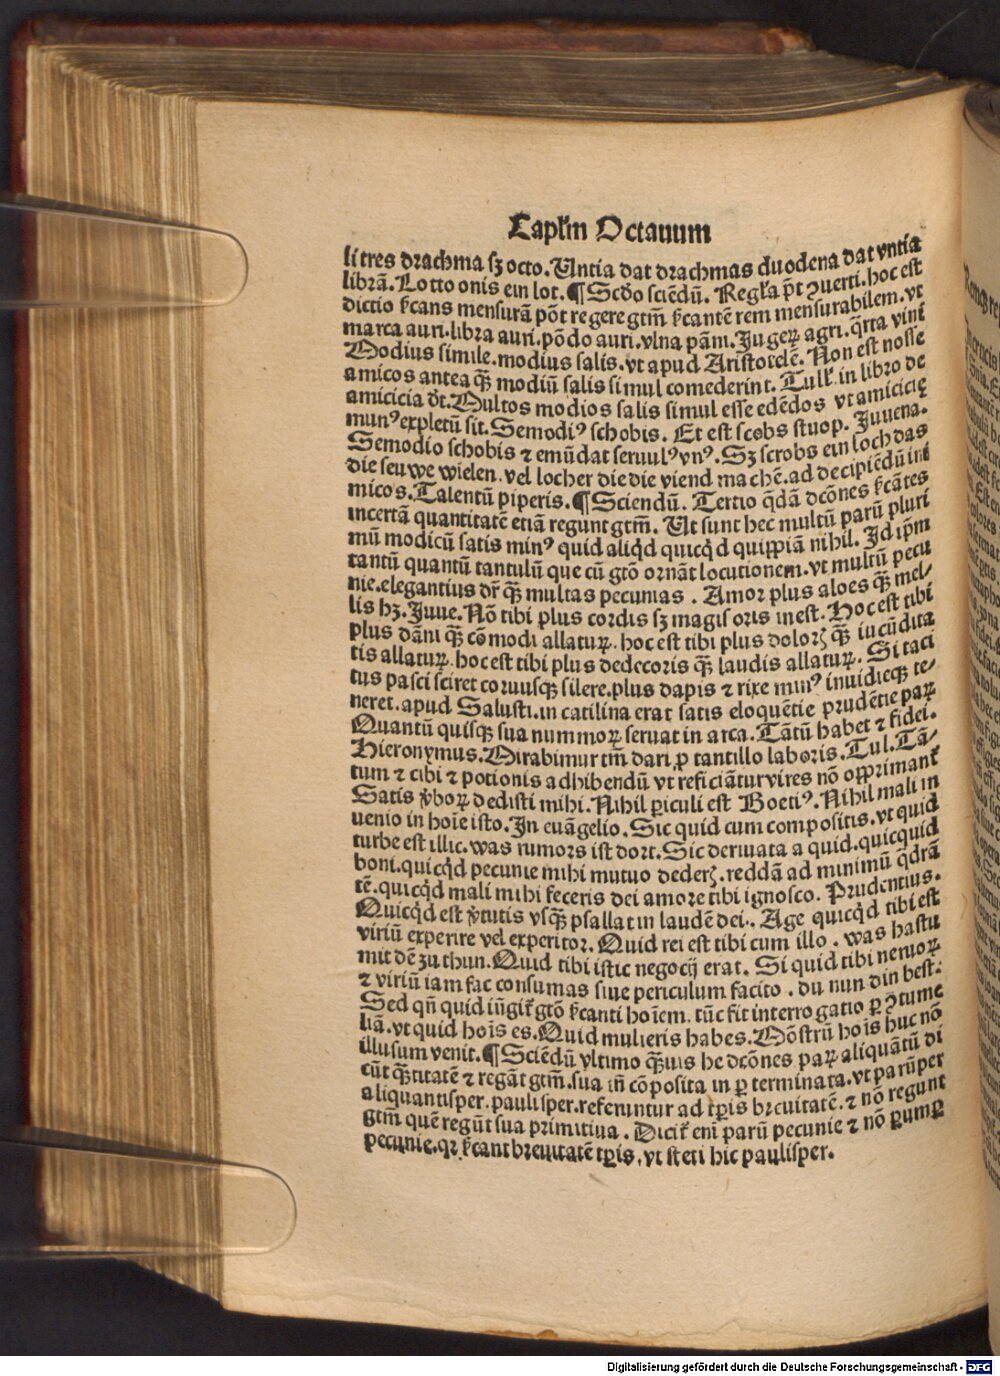 Caplm Octauum
li tres drachma sꝫ octo. Untia dat drachmas duodena dat vntia
librā. Lotto onis ein lot. ¶ Scdo sciēdū. Regła pt ꝯuerti. hoc est
dictio scans mensurā pōt regere gtm scantē rem mensurabilem. vt
marca auri. libra auri. pōdo auri. vlna pāni. Jugeꝝ agri. qrta vini
Modius simile. modius salis. vt apud Aristotelē. Non est nosse
amicos antea qꝫ modiū salis simul comederint. Tull. in libro de
amicicia dt. Multos modios salis simul esse edēdos vt amicicię
munꝰ expletū sit. Semodiꝰ schobis. Et est scobs stuop. Juuena.
Semodio schobis ⁊ emūdat seruulꝰ vnꝰ. Sꝫ scrobs ein loch das
die seuwe wielen. vel locher die die viend machē. ad decipiēdū ini
micos. Talentū piperis. ¶ Sciendū. Tertio qdā dcōnes scātes
incertā quantitatē etiā regunt gtm. Ut sunt hec multū parū pluri
mū modicū satis minꝰ quid aliqd quicqd quippiā nihil. Id ipm
tantū quantū tantulū que cū gtō ornāt locutionem. vt multū pecu
nie. elegantius dr qꝫ multas pecunias. Amor plus aloes qꝫ mel/
lis hꝫ. Juue. Nō tibi plus cordis sꝫ magis oris inest. Hoc est tibi
plus dāni qꝫ cōmodi allatuꝝ. hoc est tibi plus doloꝝ qꝫ iucūdita
tis allatuꝝ. hoc est tibi plus dedecoris qꝫ laudis allatuꝝ. Si taci
tus pasci sciret coruusqꝫ silere. plus dapis ⁊ rixe minꝰ inuidieqꝫ te/
neret. apud Salusti. in catilina erat satis eloquētie prudētie paꝝ
Quantū quisqꝫ sua nummoꝝ seruat in arca. Tātū habet ⁊ fidei.
Hieronymus. Mirabimur tm dari ꝓ tantillo laboris. Tul. Tā/
tum ⁊ cibi ⁊ potionis adhibendū vt reficiātur vires nō opprimant
Satis vboꝝ dedisti mihi. Nihil ꝑiculi est Boetiꝰ. Nihil mali in
uenio in hoīe isto. In euāgelio. Sic quid cum compositis. vt quid
turbe est illic. was rumors ist dort. Sic deriuata a quid. quicquid
boni. quicqd pecunie mihi mutuo dedeꝝ. reddā ad minimū qdrā
tē. quicqd mali mihi feceris dei amore tibi ignosco. Prudentius.
Quicqd est vtutis vsqꝫ psallat in laudē dei. Age quicqd tibi est
viriū experire vel experitor. Quid rei est tibi cum illo. was hastu
mit dē zu thun. Quid tibi istic negocij erat. Si quid tibi neruoꝝ
⁊ viriū iam fac consumas siue periculum facito. du nun din best.
Sed qn quid iūgit gtō scanti hoīem. tūc fit interrogatio ꝑ ꝯtume
liā. vt quid hoīs es. Quid mulieris habes. Mōstrū hoīs huc nō
illusum venit. ¶ Sciēdū vltimo qꝫuis he dcōnes paꝝ aliquātū di
cūt qꝫtitatē ⁊ regāt gtm. sua in cōposita in ꝑ terminata. vt parūper
aliquantisper. paulisper. referuntur ad tpis breuitatē. ⁊ nō regunt
gtm quē regūt sua primitiua. Dicit eni parū pecunie ⁊ nō ꝑumꝑ
pecunie. qr scant breuitatē tpis. vt steti hic paulisper.
Digitalisierung gefördert durch die Deutsche Forschungsgemeinschaft - DFG